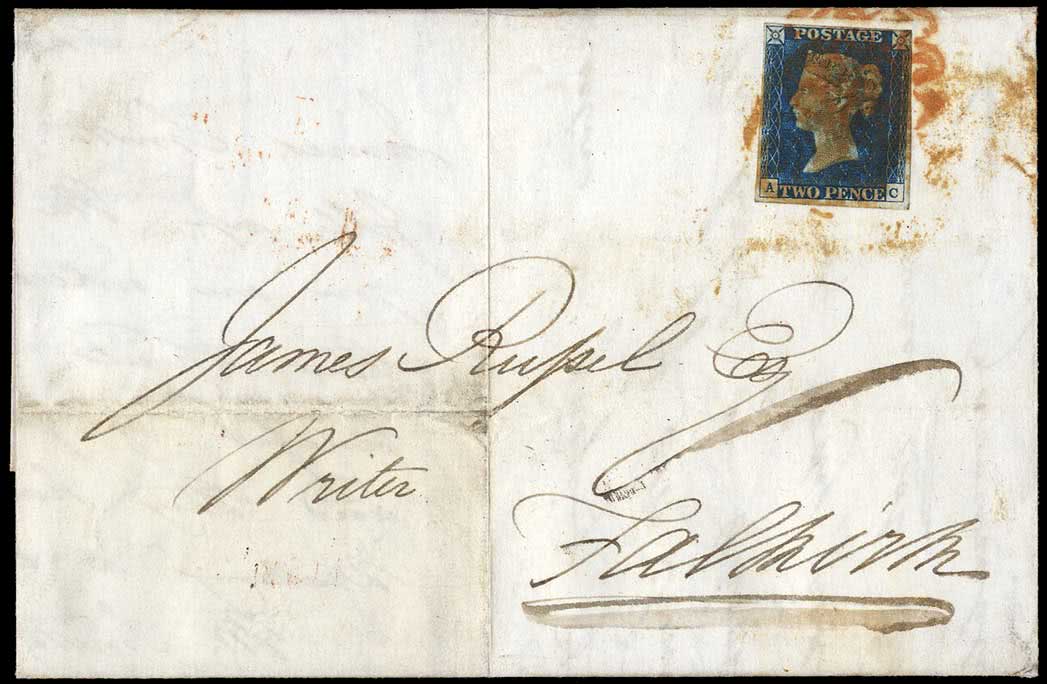 POSTAGE
A TWO PENCE C
James Ruſsel Esq
Writer
Falkirk